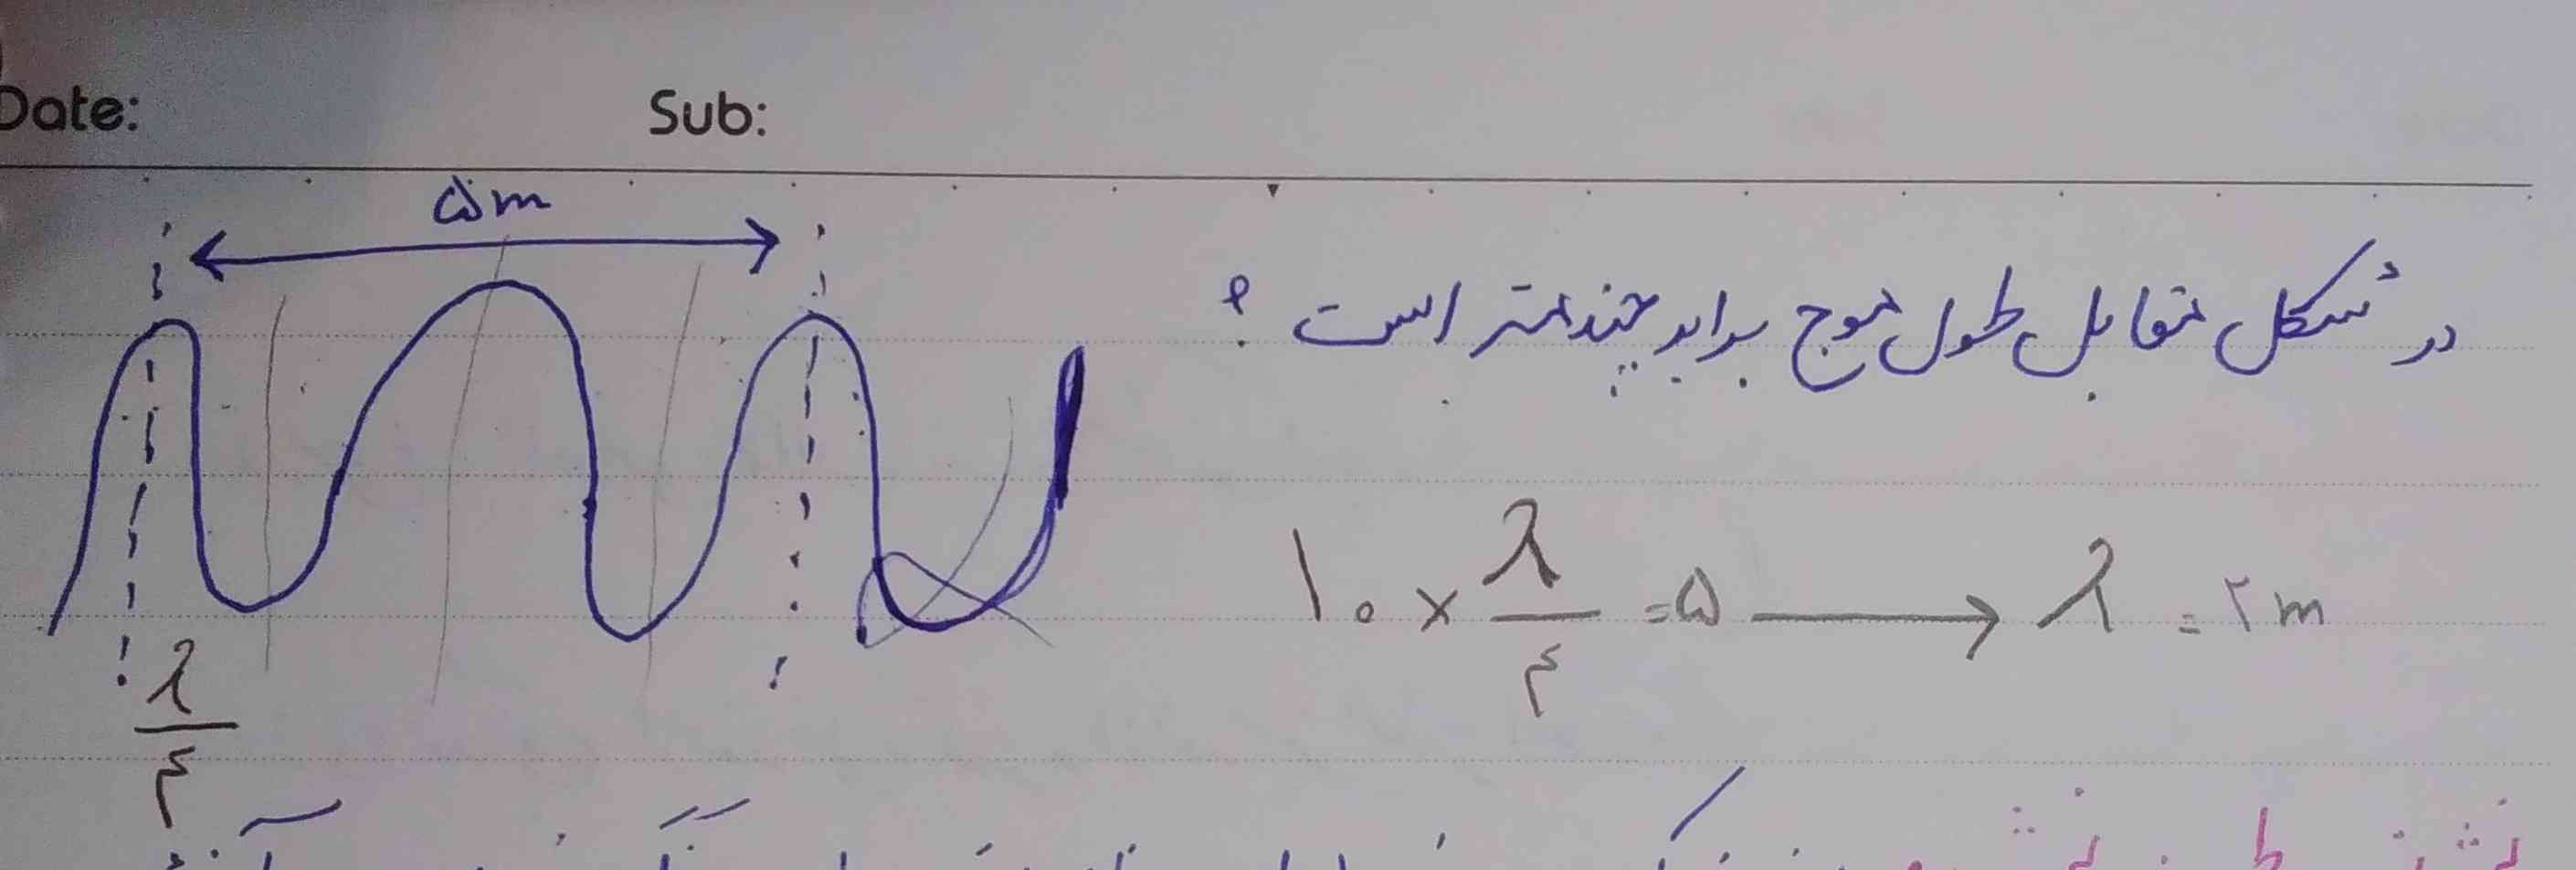 Date: Sub:
۵m
در شکل مقابل طول موج برابر چند متر است ؟
۱۰ × λ/۴ = ۵ → λ = ۲m
λ/۴